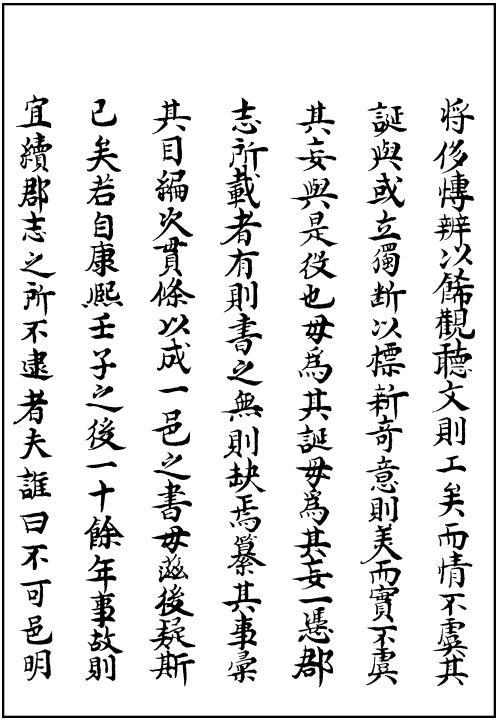 将侈博辨以飾觀聽文則工矣而情不虞其
誕與或立獨斷以標新奇意則美而實不虞
其妄與是役也毋為其誕毋為其妄一憑郡
志所載者有則書之無則缺焉纂其事彙
其目編次貫條以成一邑之書毋滋後疑斯
已矣若自康熈壬子之後一十餘年事故則
宜續郡志之所不逮者夫誰曰不可邑明